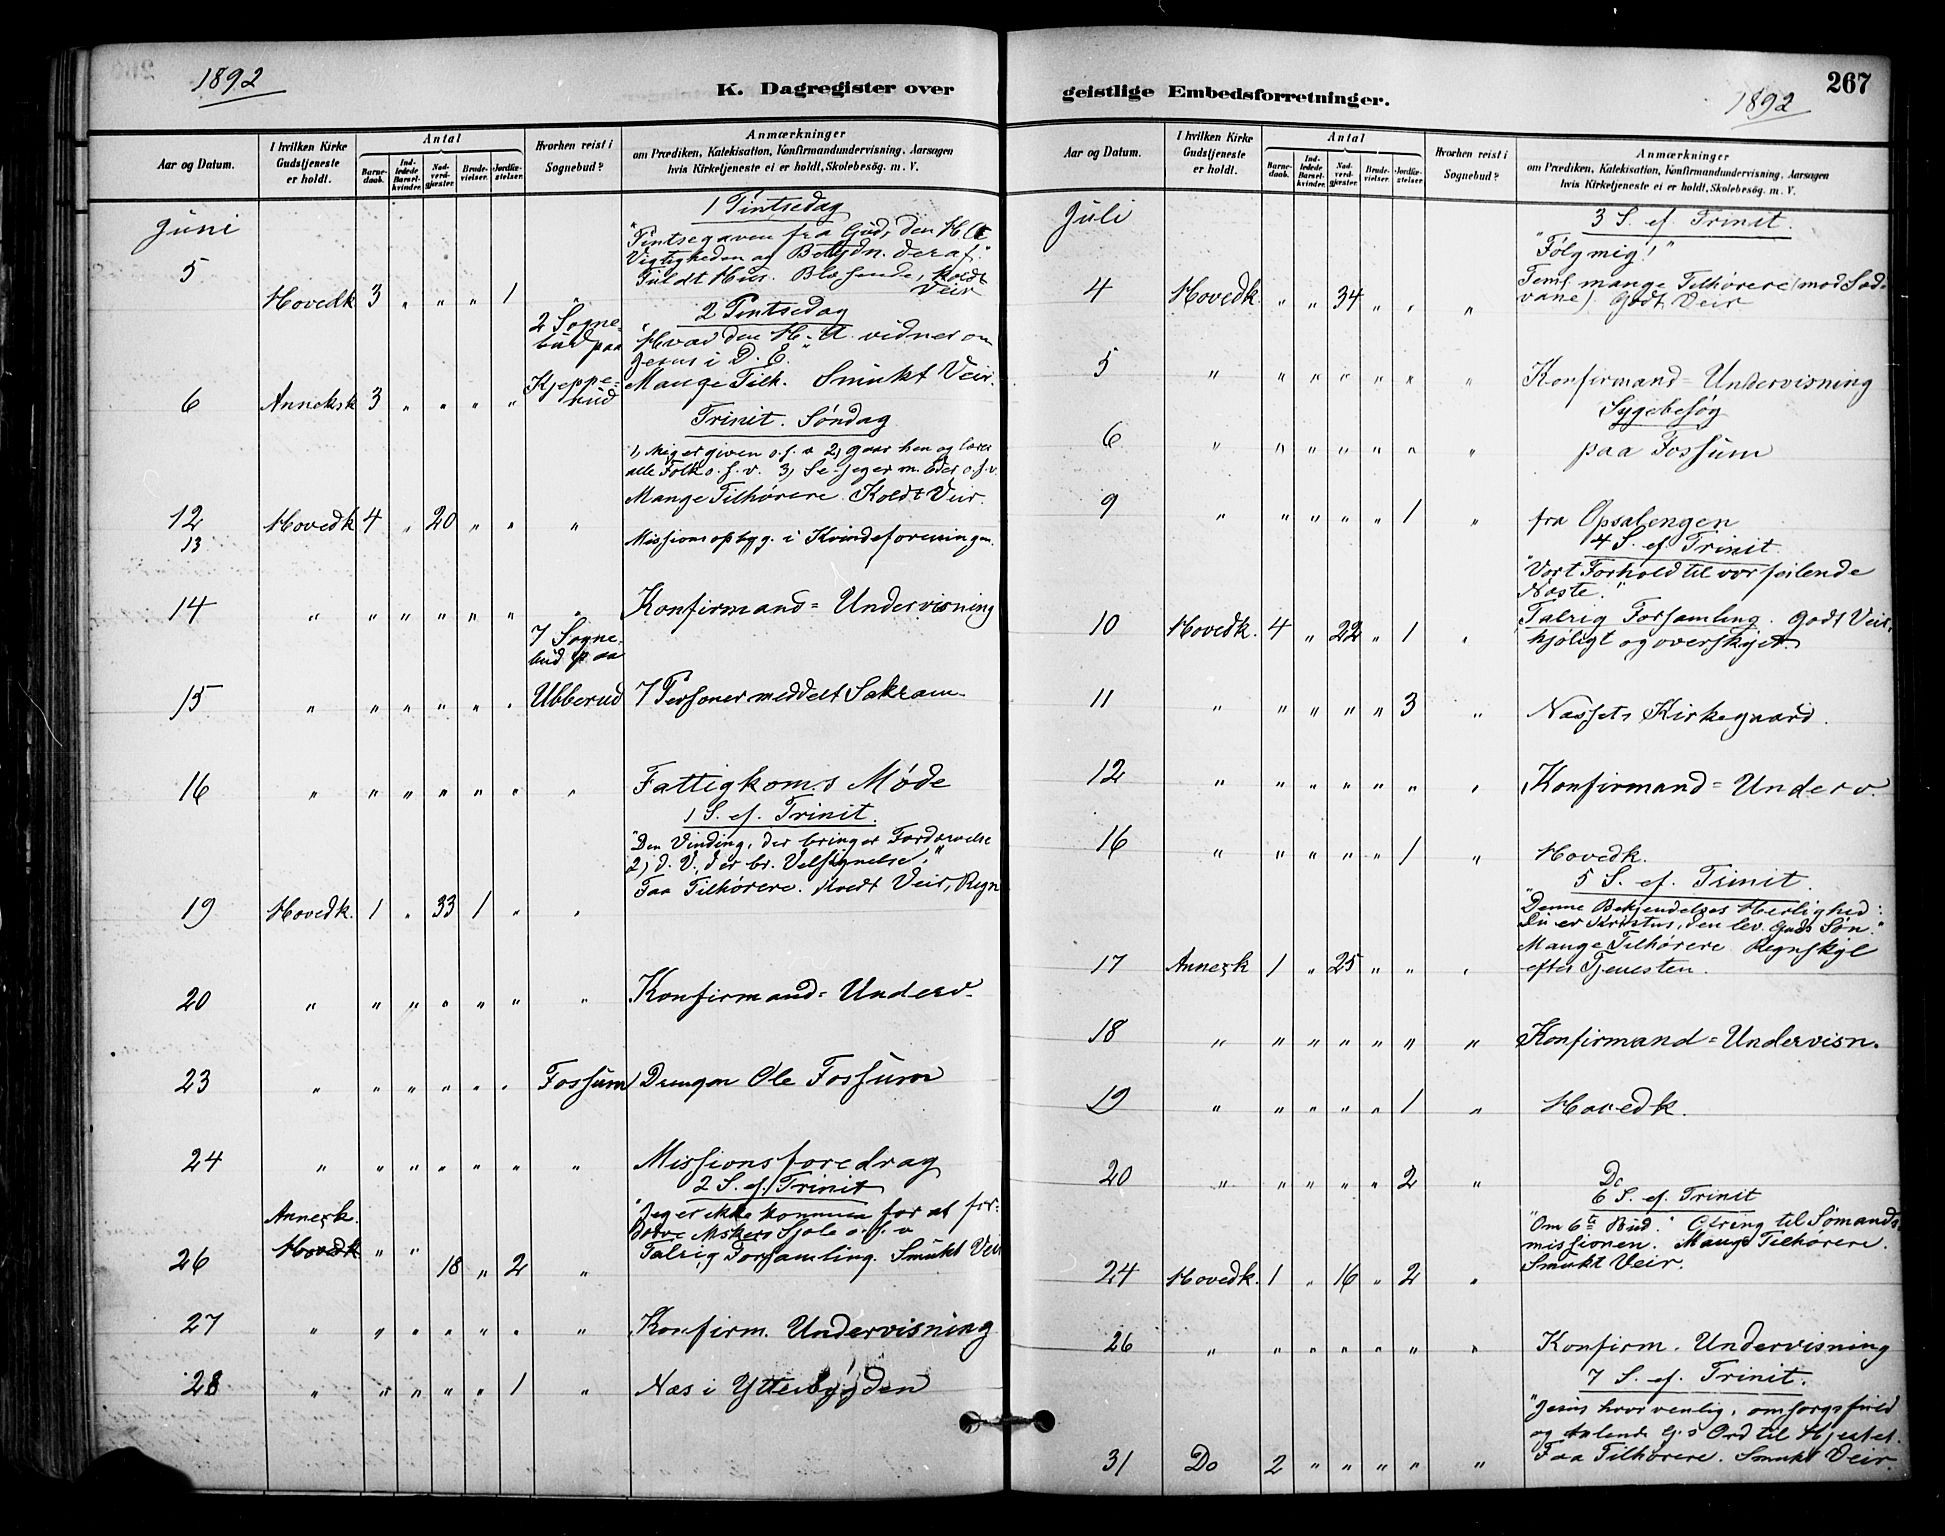 1892
K. Dagregister over
Aar og Datum.
I hvilken Kirke Gudstjeneste er holdt.
Antal
Barnedaab.
Indledede Barselkvinder.
Nadverdgjæster.
Brudevielser.
Jordfæstelser.
Hvorhen reist i Sognebud?
Anmærkninger
om Prædiken, Katekisation, Konfirmandundervisning, Aarsagen
hvis Kirketjeneste ei er holdt, Skolebesög. m. V.
Juni
1 Pintsedag
"Pintsegaven fra Gud, den H. A
Vigtigheden og Betydn. deraf."
Fuldt Hus. Blæsende, koldt
Veir
5 Hovedk 3 " " " 1 "
2 Pintsedag
2 Sogne-
bud paa
Kjeppe-
rud
"Hvad den H. A. vidner om
Jesus i D. E."
Mange Tilh. Smukt Veir.
6 Anneksk 3 " " " "
Trinit. Søndag
1, Mig er given o.s.v 2, gaar hen og lærer
alle Folk o.s.v. 3, Se jeg er m. Eder o.s.v.
Mange Tilhørere. Koldt Veir.
12 Hovedk 4 " 20 " " "
13 Missionsopbyg. i Kvindeforeningen.
14 " " " " " " " Konfirmand= Undervisning
7 Sogne-
bud paa
15 " " " " " " Ubberud 7 Personer meddelt Sakram.
16 " " " " " " " Fattigkom.s Møde
1 S. ef. Trinit.
"Den Vinding, der bringer Fordærvelse
2) d. V. der br. Velsignelse."
Faa Tilhørere. Koldt Veir, Regn
19 Hovedk. 1 " 33 1 " "
20 " " " " " " " Konfirmand= Underv.
23 " " " " " " Fossum Drengen Ole Fossum
24 " " " " " " " Missionsforedrag
2 S. ef. Trinit
Annexk.
Hovedk
"Jeg er ikke kommen for at for-
dærve Mskers Sjæle o.s.v
Talrig Forsamling. Smukt Veir
26 " " 18 " 2 "
27 " " " " " " " Konfirm. Undervisning
28 " " " " " 1 " Næs i Ytterbygden
267
geistlige Embedsforretninger.
1892
Aar og Datum.
I hvilken Kirke Gudstjeneste er holdt.
Antal
Barnedaab.
Indledede Barselkvinder.
Nadverdgjæster.
Brudevielser.
Jordfæstelser.
Hvorhen reist i Sognebud?
Anmærkninger
om Prædiken, Katekisation, Konfirmandundervisning, Aarsagen
hvis Kirketjeneste ei er holdt, Skolebesög. m. V.
Juli
3 S. ef. Trinit.
"Følg mig!"
Teml. mange Tilhørere (mod Sæd-
vane). Godt Veir
4 Hovedk. " " 34 " " "
5 " " " " " " " Konfirmand= Undervisning
Sygebesøg
6 " " " " " " " paa Fossum
9 " " " " " 1 " fra Opsalengen
4 S. ef. Trinit.
"Vort Forhold til vor feilende
Næste."
10 Hovedk. 4 " 22 " 1 " Talrig Forsamling. Godt Veir,
kjøligt og overskyet.
11 " " " " " 3 " Næssets Kirkegaard.
12 " " " " " " " Konfirmand= Underv.
16 " " " " " 1 " Hovedk.
5 S. ef. Trinit.
"Denne Bekjendelses Herlighed:
Du er Kristus, den lev. Guds Søn."
Mange Tilhørere Regnskyl
17 Annexk 1 " 25 " " " efter Tjenesten.
18 " " " " " " " Konfirmand= Undervisn.
19 " " " " " 1 " Hovedk.
20 " " " " " 2 " Do
6 S. ef. Trinit
"Om 6te Bud." Ofring til Sømands-
missionen. Mange Tilhørere.
Smukt Veir.
24 Hovedk. 1 " 16 " 2 "
26 " " " " " " " Konfirm. Undervisning
7 S. ef. Trinit.
"Jesus hvor venlig, omsorgsfuld
og talende G.s Ord til Hjertet.
31 Do 2 " " " " " Faa Tilhørere. Smukt Veir.